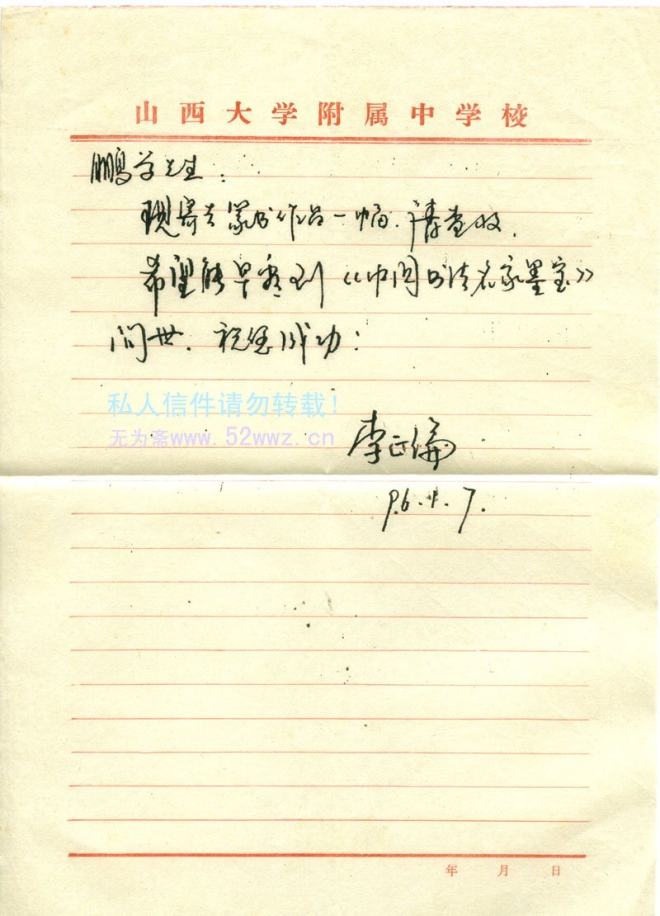 山西大学附属中学校
鹏学先生：
现寄去篆书作品一幅，请查收。
希望能早看到《中国书法名家墨宝》
问世，祝您成功！
私人信件请勿转载！
无为斋www.52wwz.cn
李正
96.4.7.
年 月 日